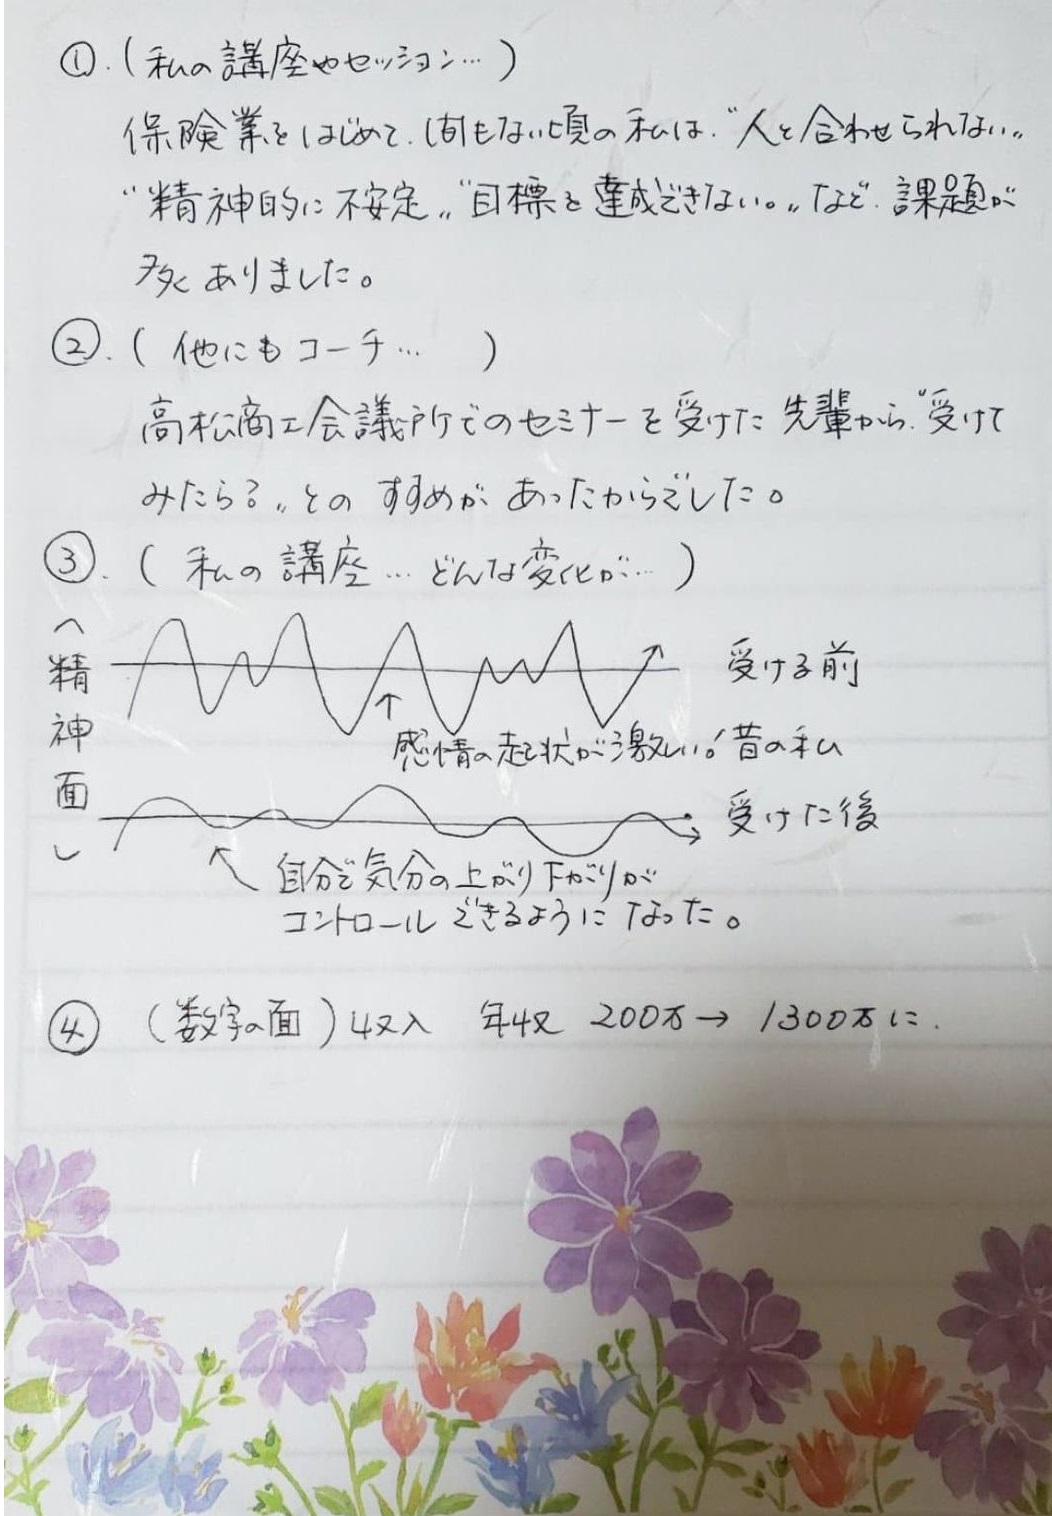 ①.(私の講座やセッション…)
保険業をはじめて、何もない頃の私は、"人と合わせられない"
"精神的に不安定" "目標を達成できない。"など、課題が
多くありました。
②.(他にもコーチ… )
高松商工会議所でのセミナーを受けた先輩から、"受けて
みたら?"とのすすめがあったからでした。
③.(私の講座…どんな変化が…)
〈精神面〉
受ける前
感情の起状が激しい!昔の私
受けた後
自分で気分の上がり下がりが
コントロールできるようになった。
④ (数字の面)収入 年収 200万→1300万に.